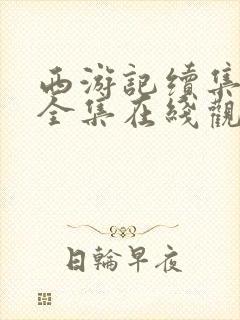 西游記續集
全集在綫觀
日輪早夜